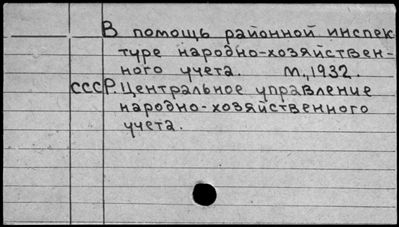 В помощь районной инспек
туре народно-хозяйствен-
ного учета. М., 1932.
СССР. Центральное управление
народно-хозяйственного
учета.